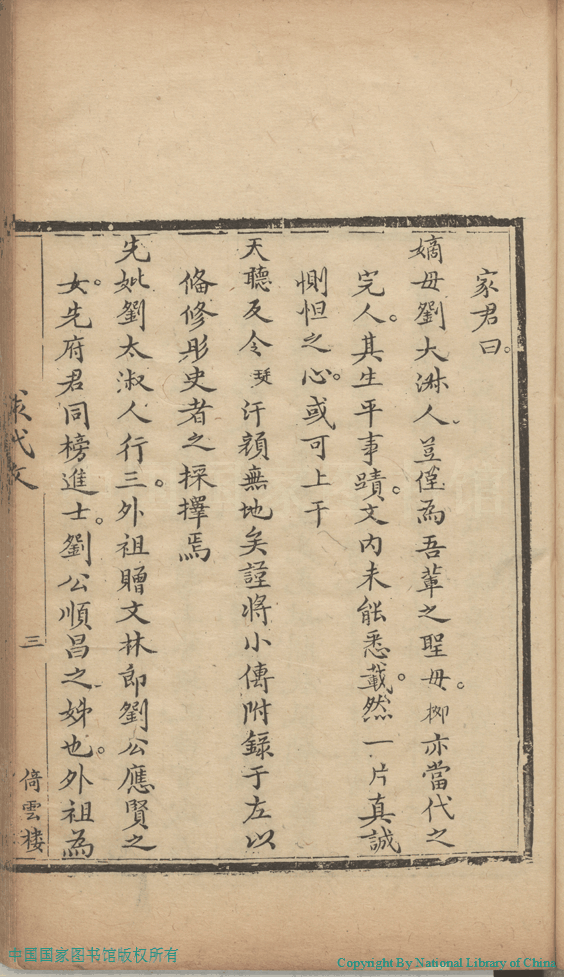 家君曰。
嫡母劉大淑人。豈僅為吾輩之聖母。抑亦當代之
完人。其生平事蹟。文內未能悉載。然一片真誠
惻怛之心。或可上干
天聽及今 琴 汗顏無地矣謹將小傳附錄于左以
備修彤史者之採擇焉
先妣劉太淑人行三。外祖贈文林郎劉公應賢之
女。先府君同榜進士。劉公順昌之姊也。外祖為
三
倚雲樓
中国国家图书馆版权所有
Copyright By National Library of China